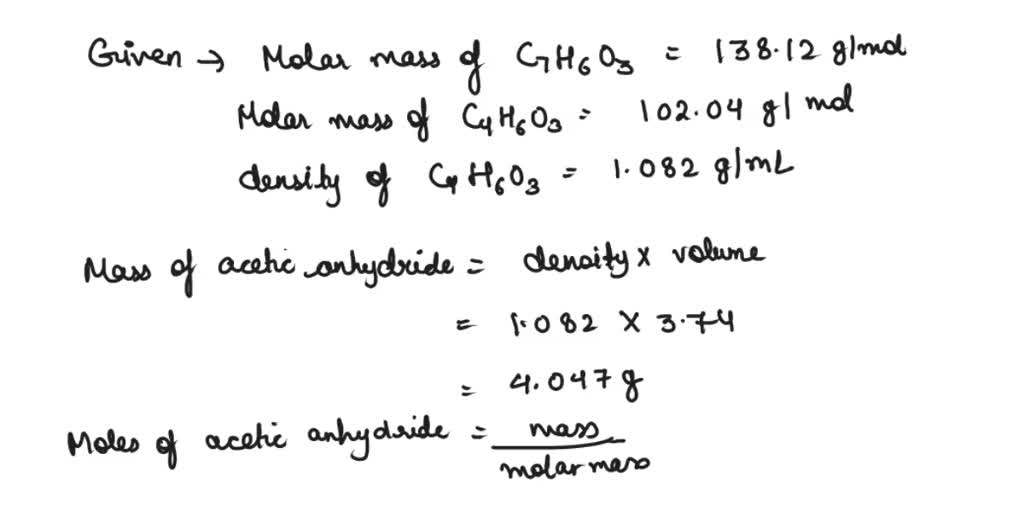 Given → Molar mass of C7H6O3 = 138.12 g/mol
Molar mass of C4H6O3 = 102.04 g/mol
density of C4H6O3 = 1.082 g/mL
Mass of acetic anhydride = density x volume
= 1.082 x 3.74
= 4.047 g
Moles of acetic anhydride = mass
molar mass